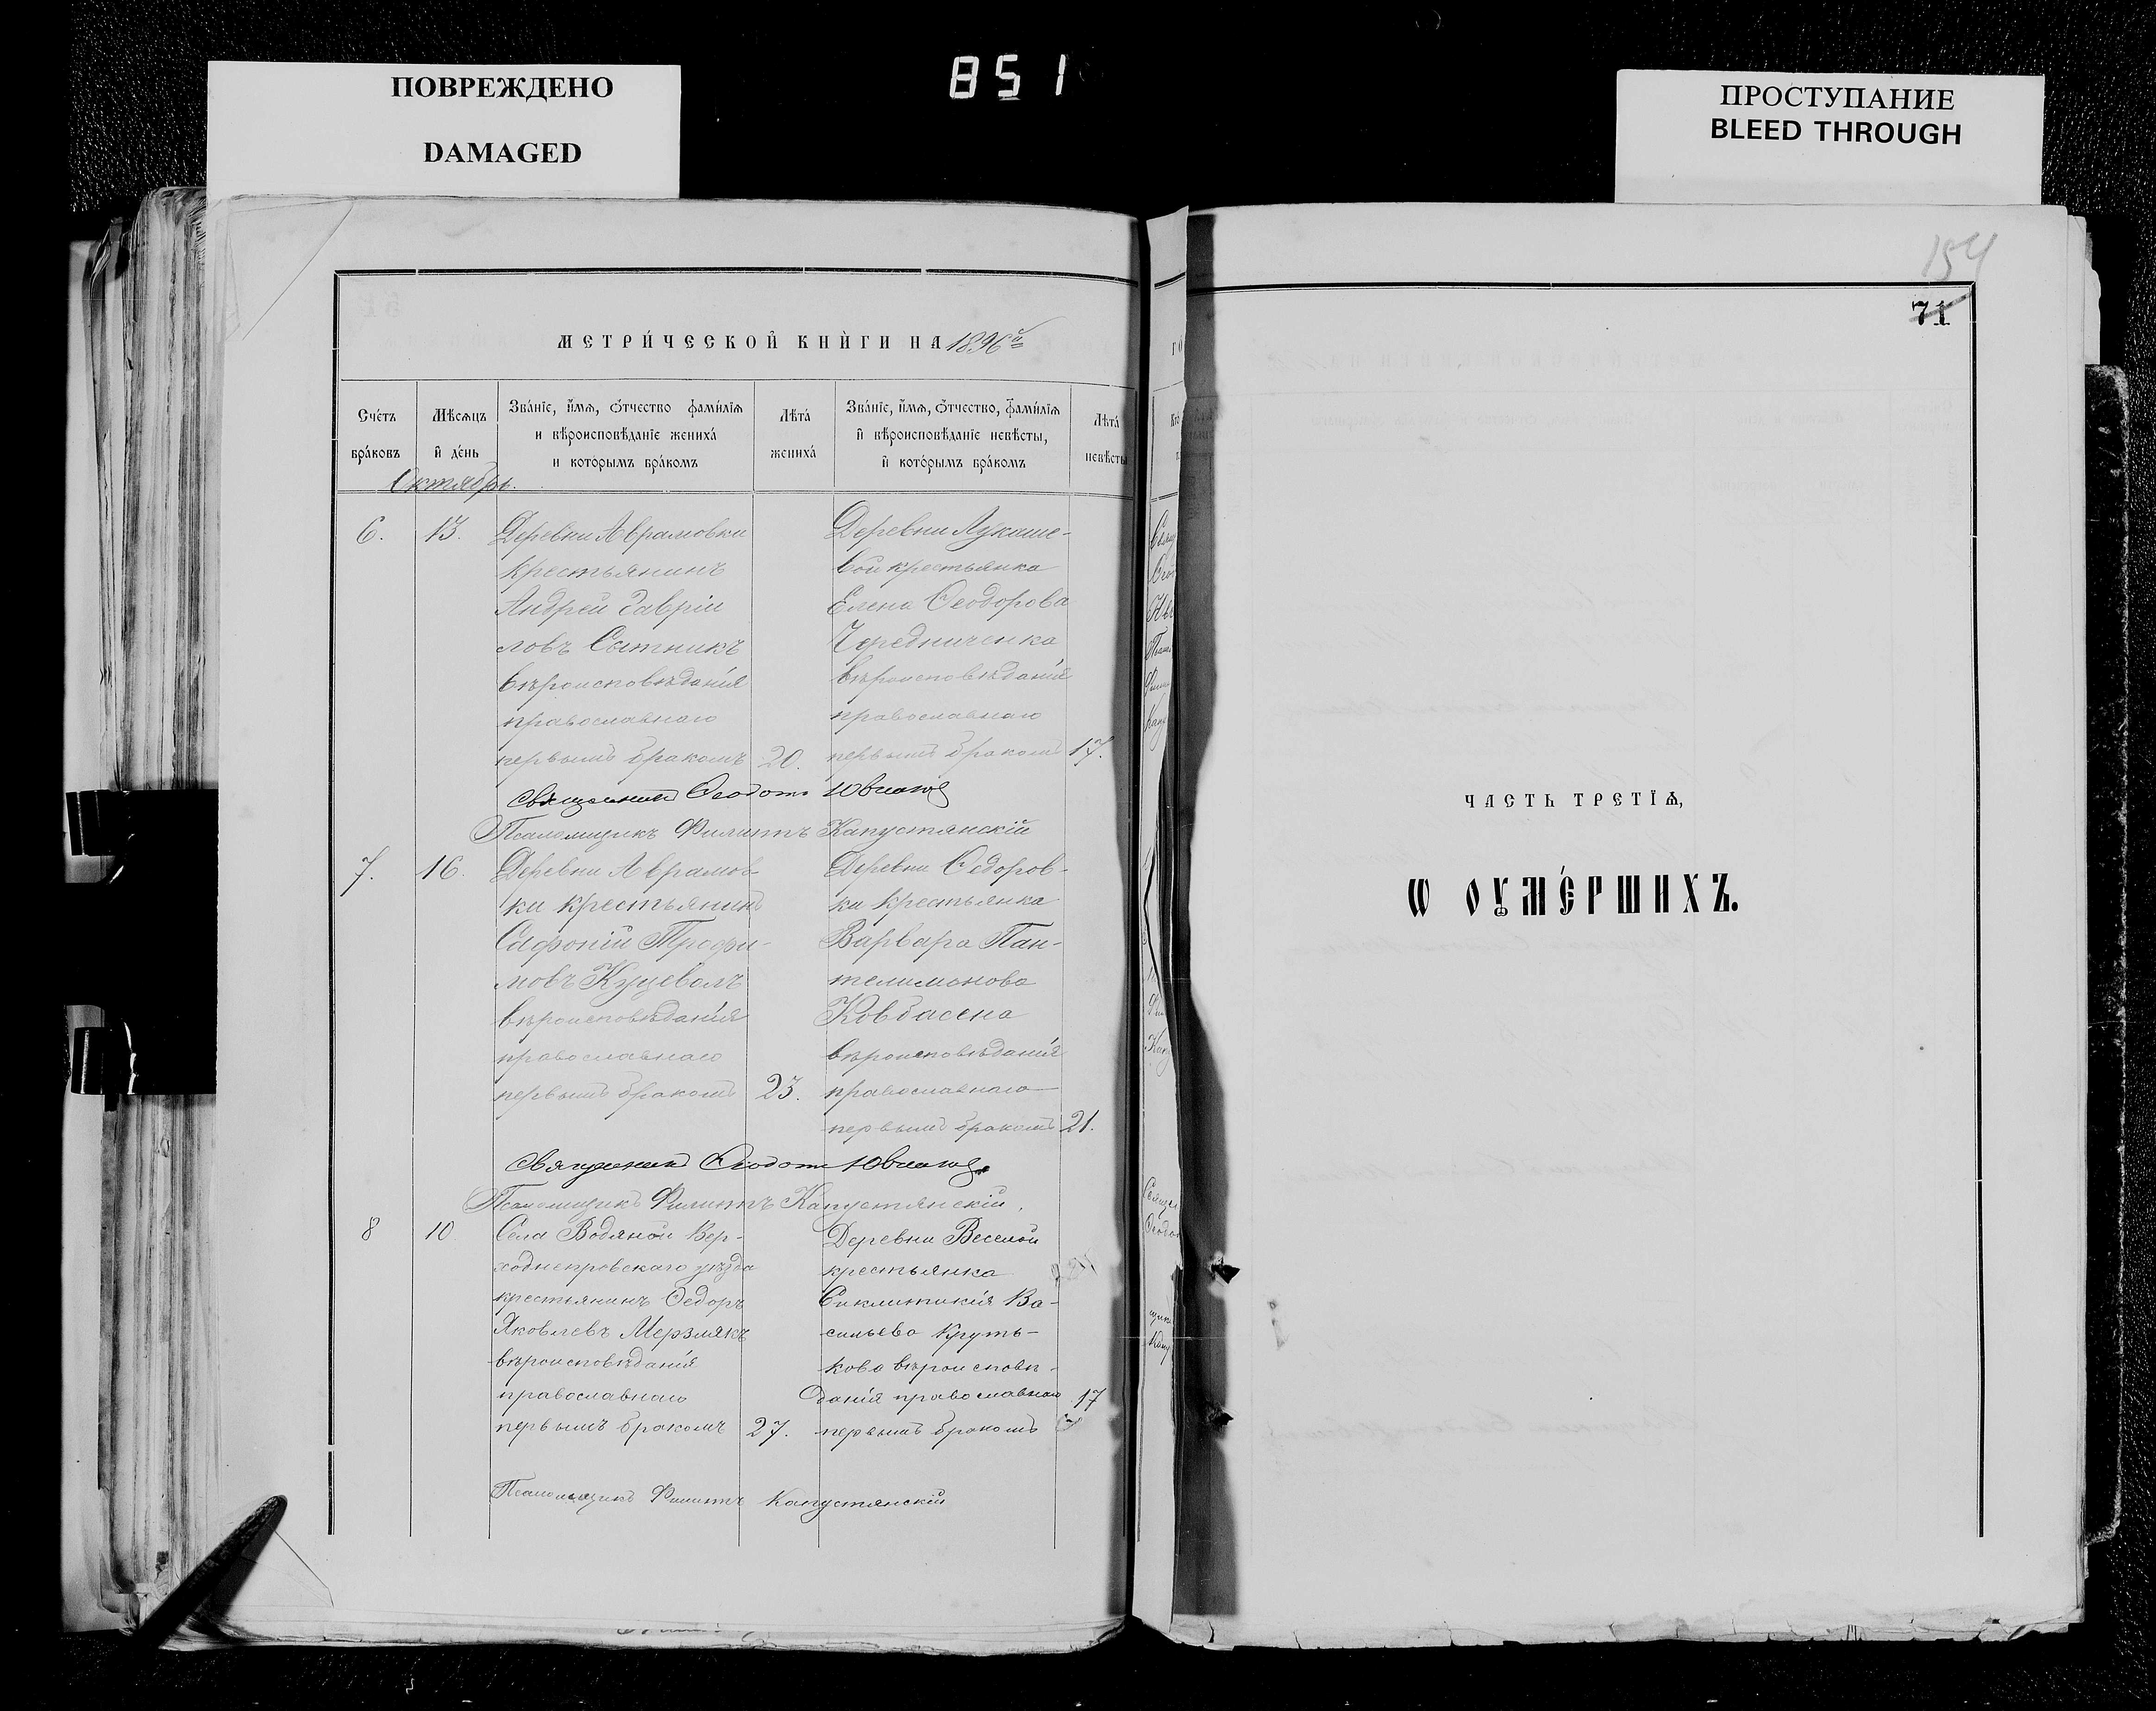 ПОВРЕЖДЕНО
DAMAGED
851
ПРОСТУПАНИЕ
BLEED THROUGH
МЕТРИ́ЧЕСКОЙ КНИ́ГИ НА 1896й
Сче́тъ бра́ковъ
Мѣ́сѧцъ и҆ де́нь
Зва́нїе, и҆́мѧ, ѻ҆́тчество фами́лїѧ
и вѣроисповѣ́данїе жениха́
и кото́рымъ бра́комъ
Лѣта́ жениха́
Зва́нїе, и҆́мѧ, ѻ҆́тчество, фами́лїѧ
и҆ вѣроисповѣ́данїе невѣ́сты,
и҆ кото́рымъ бра́комъ
Лѣта́ невѣ́сты
Октябрь.
6. 13. Деревни Аврамовки
крестьянинъ
Андрей Гаврiи
ловъ Сытникъ
вѣроисповѣданiя
православнаго
первымъ бракомъ 20.
Деревни Лукаше-
вой крестьянка
Елена Ѳеодорова
Чередниченка
вѣроисповѣданiя
православнаго
первымъ бракомъ 17.
Священникъ Ѳеодотъ
Псаломщикъ Филиппъ Капустянскiй
7. 16. Деревни Аврамов-
ки крестьянинъ
Сафонiй Трофи-
мовъ Куцеволъ
вѣроисповѣданiя
православнаго
первымъ бракомъ 23.
Деревни Ѳедоров-
ки крестьянка
Варвара Пан-
телимонова
Ковбасена
вѣроисповѣданiя
православнаго
первымъ бракомъ 21.
Священникъ Ѳеодотъ
Псаломщикъ Филиппъ Капустянскiй.
8 10. Села Водяной Вер-
ходнепровскаго уѣзда
крестьянинъ Ѳедоръ
Яковлевъ Мерзлякъ
вѣроисповѣданiя
православнаго
первымъ бракомъ 27.
Деревни Веселой
крестьянка
Синклитикiя Ва-
сильева Круть-
кова вѣроисповѣ-
данiя православнаго 17
первымъ бракомъ
Псаломщикъ Филиппъ Капустянскiй
154
71
ЧАСТЬ ТРЕТЇѦ,
Ѡ ОУ҆МЕ́РШИХЪ.